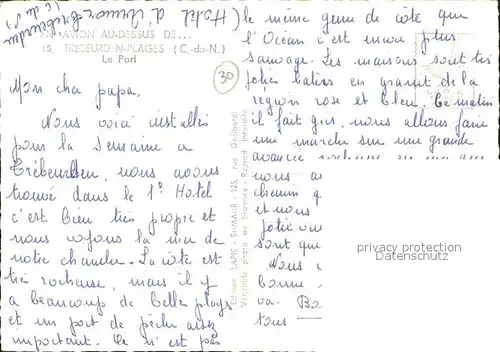 (Hotel d'Armor Trébeurden
(C. du N)
EN AVION AU-DESSUS DE...
15, TREBEURDEN-PLAGES (C.-du-N.)
Le Port
30
Mon cher papa,
Nous voici installés
pour la semaine a
Trébeurden, nous avons
trouvé dans le 1er Hotel
c'est bien très propre et
nous voyons la mer de
notre chambre. La côte est
très rocheuse, mais il y
a beaucoup de belles plages
et un port de pêche assez
important. Ce n'est pas
Edition LAPIE - St-MAUR - 125, rue Garibaldi
Véritable photo au bromure - Reprod. interdite
le même genre de côte que
l'Océan c'est encore plus
sauvage. Les maisons sont très
jolies baties en granit de la
région rose et bleu. Ce matin
il fait gris, nous allons faire
une marche sur une grande
nous a
chemin q
et nous
jolie
sont que
Nous
bonne
va. Bo
tous
privacy protection
Datenschutz